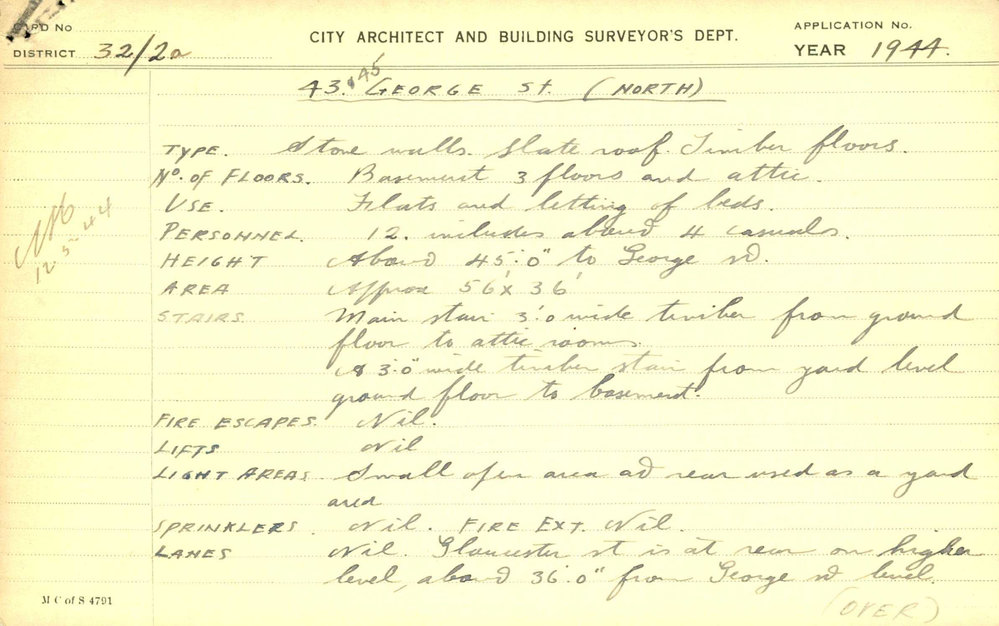 CARD NO
DISTRICT 32/2a
CITY ARCHITECT AND BUILDING SURVEYOR'S DEPT.
APPLICATION No.
YEAR 1944.
43.&45 GEORGE St. (NORTH)
TYPE. Stone walls. Slate roof. Timber floors.
No. OF FLOORS. Basement 3 floors and attic.
USE. Flats and letting of beds.
PERSONNEL. 12. includes about 4 casuals.
HEIGHT About 45'.0" to George st.
AREA Approx 56' x 36'
STAIRS Main stair 3'.0 wide timber from ground
floor to attic rooms.
A 3'.0" wide timber stair from yard level
ground floor to basement.
FIRE ESCAPES. Nil.
LIFTS Nil
LIGHT AREAS Small open area at rear used as a yard
area
SPRINKLERS. Nil. FIRE EXT. Nil.
LANES Nil. Gloucester st is at rear on higher
level, about 36'.0" from George st level.
(OVER)
12.5.44
M C of S 4791